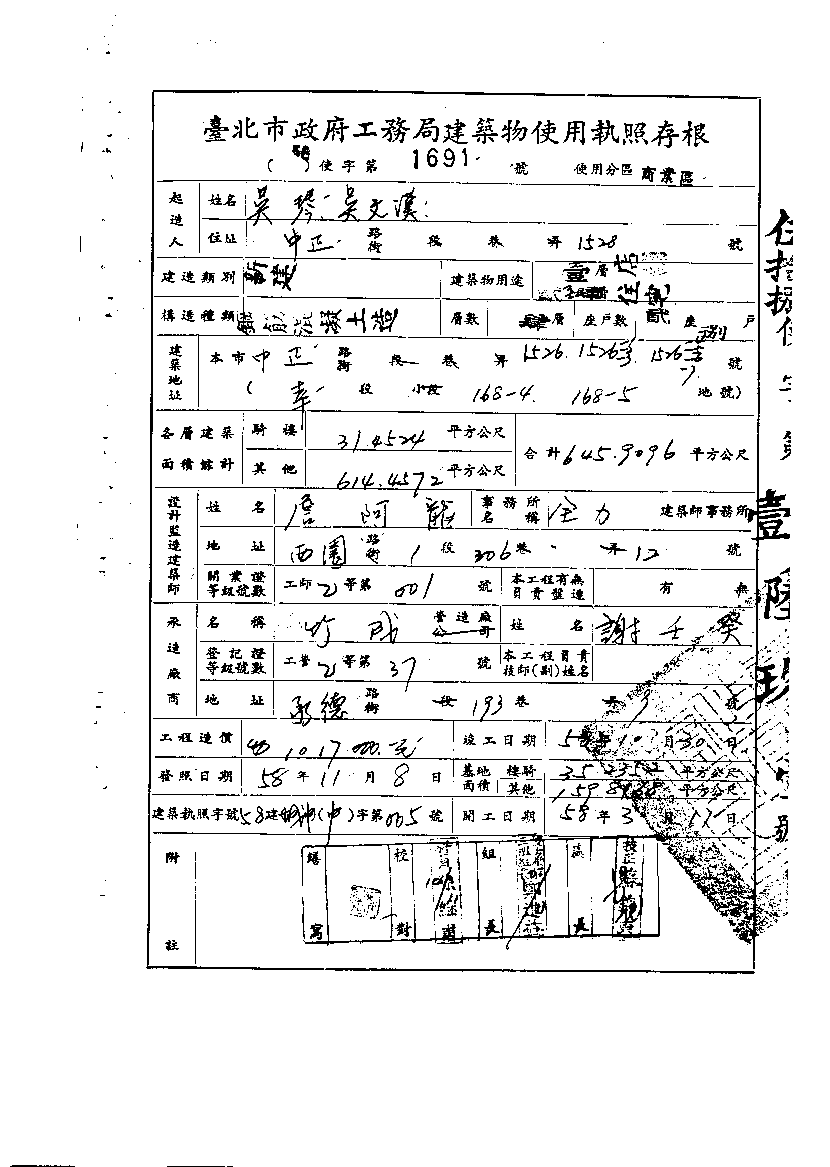 臺北市政府工務局建築物使用執照存根
( ) 使字第 1691 號 使用分區 商業區
起造人 姓名 吳 琴 吳文漢
住址 中正 路街 段 巷 弄 1528 號
建造類別 新建 建築物用途 壹層 店 住宅
構造種類 鋼筋混凝土造 層數 層 座戶數 座 捌 戶
建築地址 本市 中正 路街 段 巷 弄 1526. 1526 1526 號
( 幸 段 小段 168-4 168-5 地號)
各層建築面積總計 騎樓 31.4524 平方公尺 合計 645.9096 平方公尺
其他 614.4572 平方公尺
設計監造建築師 姓名 詹阿龍 事務所名稱 全力 建築師事務所
地址 西園 路街 1 段 306 巷 弄 12 號
開業證等級號數 工師 乙 等第 001 號 本工程有無負責監造 有 無
承造廠商 名稱 竹成 營造廠公司 姓名 謝壬癸
登記證等級號數 工營 乙 等第 37 號 本工程負責技師(副)姓名
地址 承德 路街 段 193 巷 弄 3 號
工程造價 1017000元 竣工日期 58 年 10 月 30 日
發照日期 58 年 11 月 8 日 基地面積 樓騎 35.2352 平方公尺
其他 平方公尺
建築執照字號 58 建 (中) 字第 005 號 開工日期 58 年 3 月 17 日
附註 繕寫 校對 組長 區長
伍拾捌使字第壹陸玖壹號